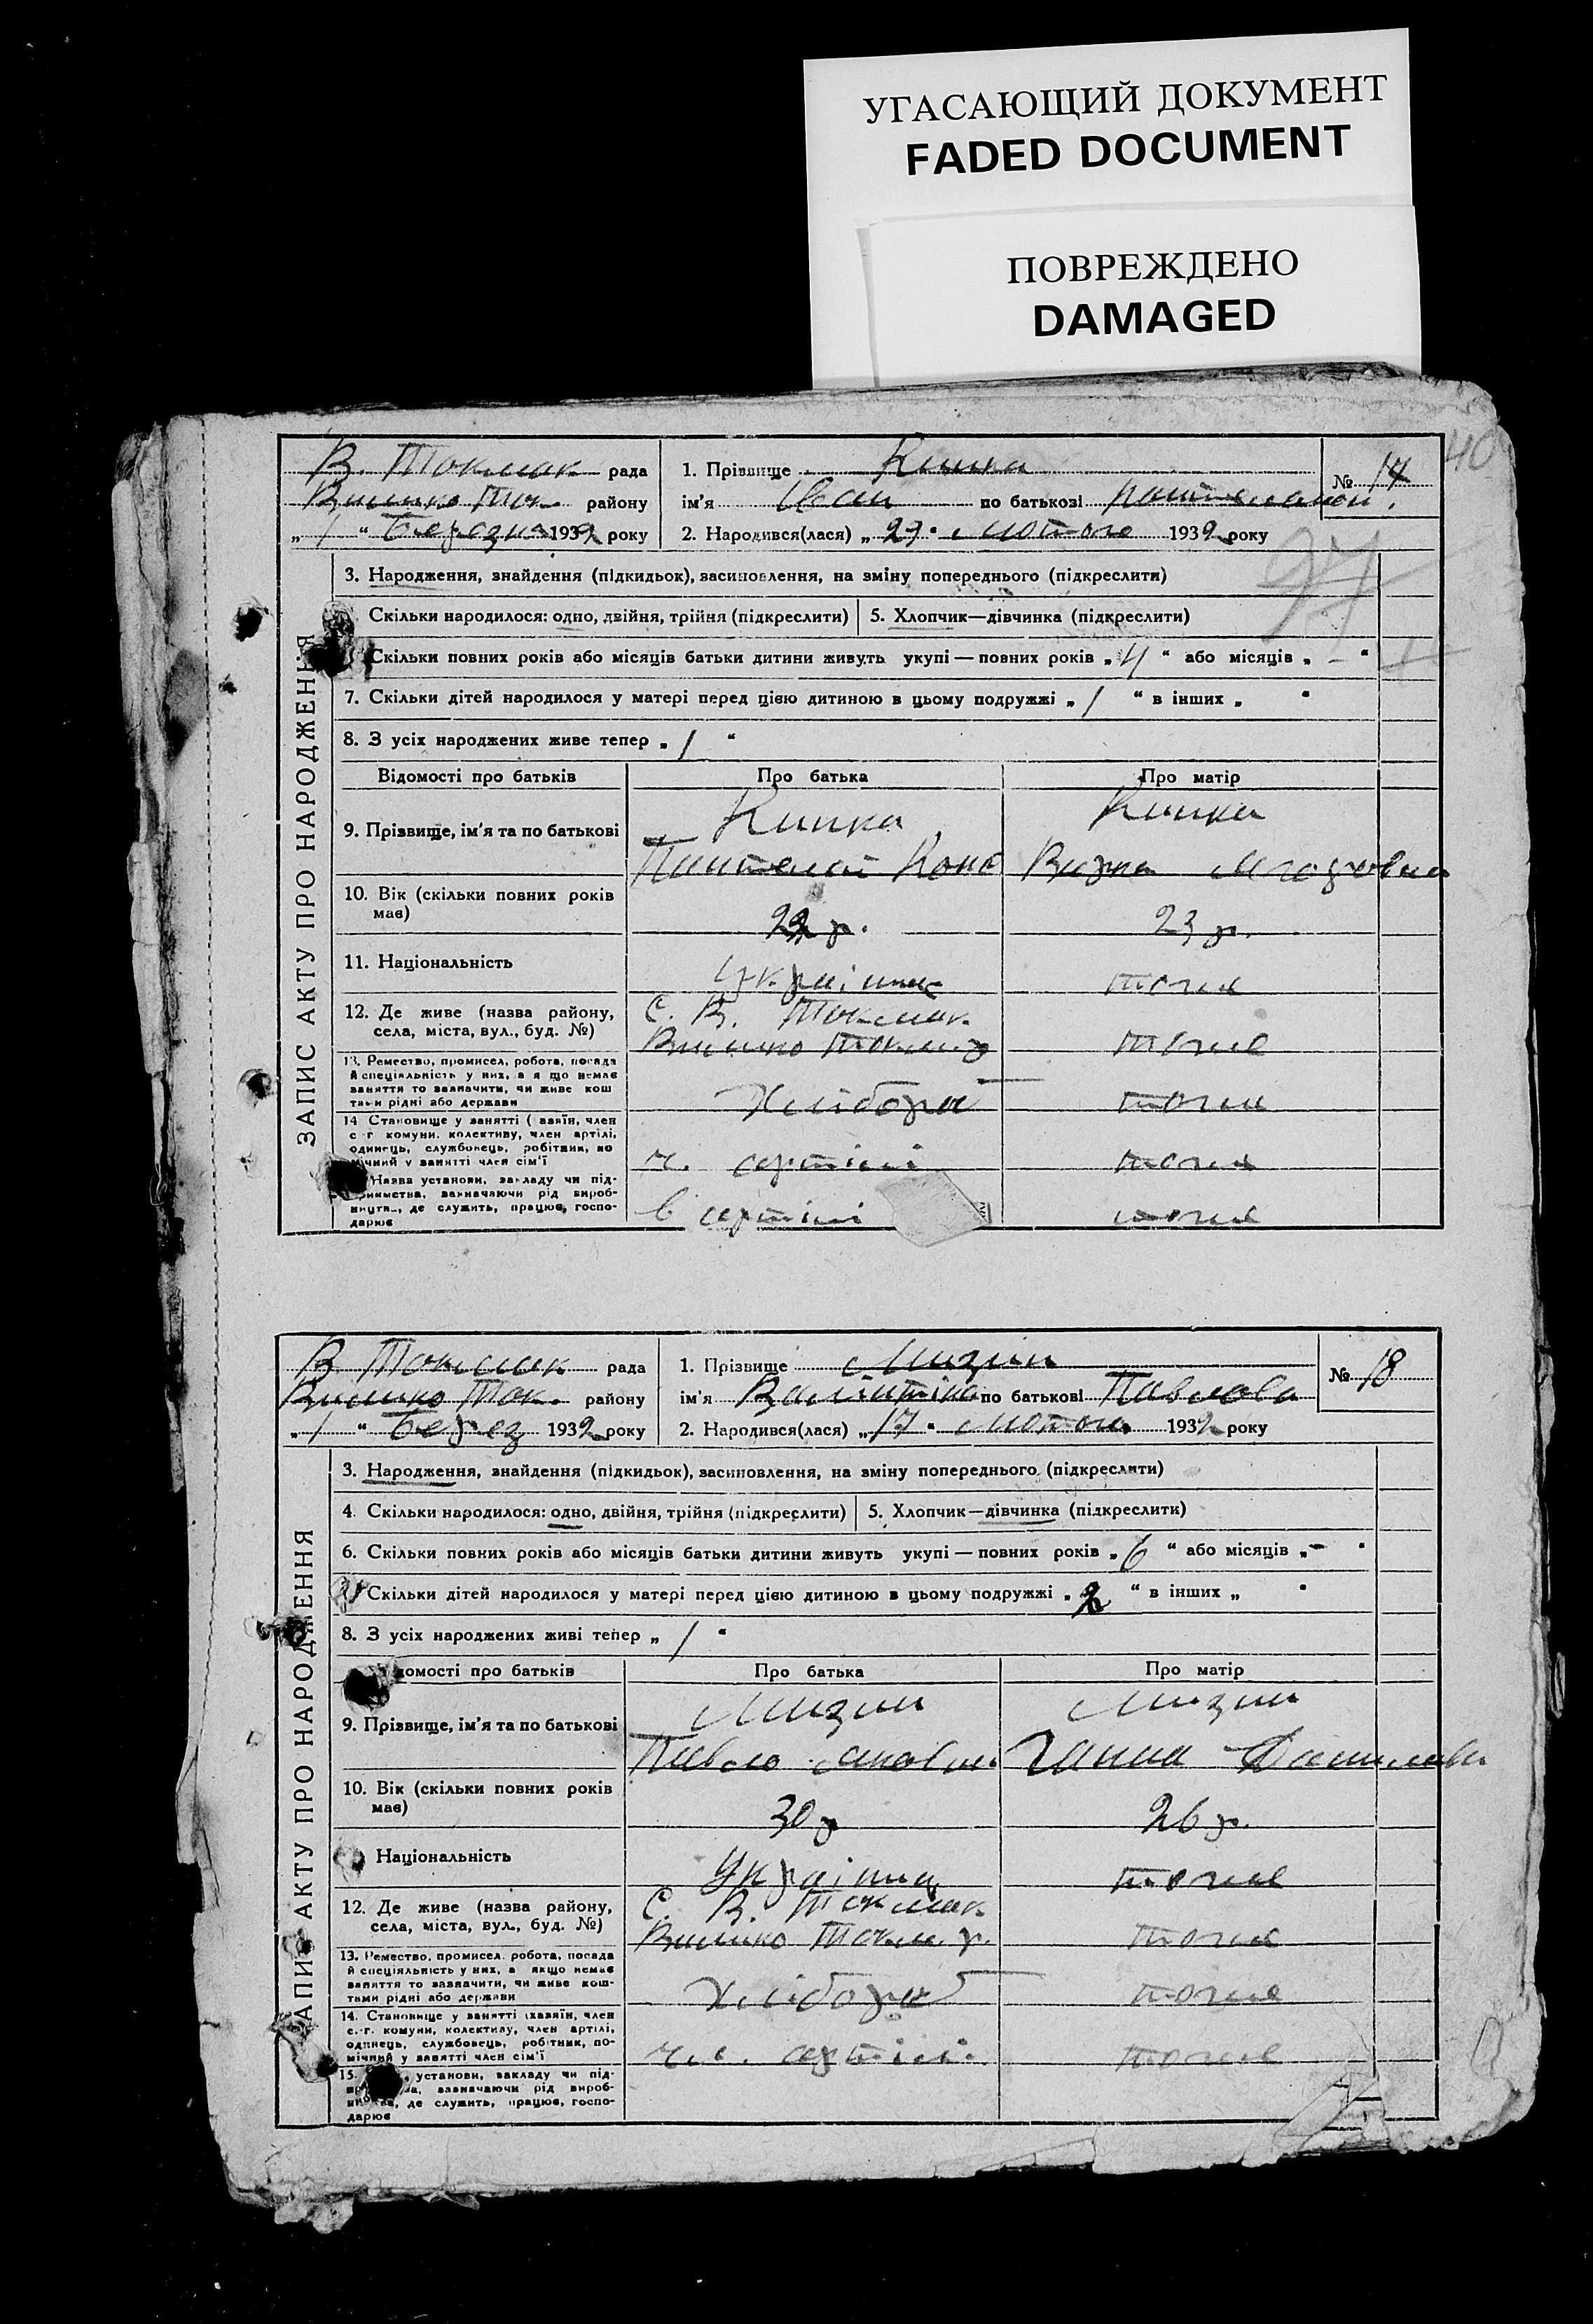 УГАСАЮЩИЙ ДОКУМЕНТ
FADED DOCUMENT
ПОВРЕЖДЕНО
DAMAGED
40
В. Токмак рада
Велико Ток. району
„ 1 “ Березня 1932 року
1. Прізвище Кишка
ім’я Іван по батькові
2. Народився(лася) „ 29 “ лютого 1932 року
№ 17
ЗАПИС АКТУ ПРО НАРОДЖЕННЯ
3. Народження, знайдення (підкидьок), засиновлення, на зміну попереднього (підкреслити)
Скільки народилося: одно, двійня, трійня (підкреслити) 5. Хлопчик—дівчинка (підкреслити)
Скільки повних років або місяців батьки дитини живуть укупі — повних років „ 4 “ або місяців „ – “
7. Скільки дітей народилося у матері перед цією дитиною в цьому подружжі „ 1 “ в інших „ “
8. З усіх народжених живе тепер „ 1 “
Відомості про батьків Про батька Про матір
9. Прізвище, ім’я та по батькові
Кишка Кишка
Пантелей Конс
10. Вік (скільки повних років має)
р. 23 р.
11. Національність
українц тоже
12. Де живе (назва району, села, міста, вул., буд. №)
С. В. Токмак
Велико Токм. р тоже
13. Ремество, промисел, робота, посада
й спеціяльність у них, а я що немає
заняття то зазначити, чи живе кош
тами рідні або держави
Хлібороб тоже
14 Становище у занятті ( авяїн, член
с г комуни, колективу, член артілі,
одинець, службовець, робітник, по
мічний у занятті член сім’ї
ч. артілі тоже
Назва установи, закладу чи під-
приємства, зазначаючи рід вироб-
ництва, де служить, працює, госпо-
дарює
в артілі тоже
В Токмак рада
Велико Ток. району
„ 1 “ Берез 1932 року
1. Прізвище Мизин
ім’я Валінтіна по батькові Павлова
2. Народився(лася) „ 17 “ лютого 1932 року
№ 18
ЗАПИС АКТУ ПРО НАРОДЖЕННЯ
3. Народження, знайдення (підкидьок), засиновлення, на зміну попереднього (підкреслити)
4. Скільки народилося: одно, двійня, трійня (підкреслити) 5. Хлопчик—дівчинка (підкреслити)
6. Скільки повних років або місяців батьки дитини живуть укупі — повних років „ 6 “ або місяців „ – “
Скільки дітей народилося у матері перед цією дитиною в цьому подружжі „ 2 “ в інших „ “
8. З усіх народжених живі тепер „ 1 “
домості про батьків Про батька Про матір
9. Прізвище, ім’я та по батькові
Мизин Мизин
Павло Ганна Данилова
10. Вік (скільки повних років має)
30 р 26 р.
Національність
Українц тоже
12. Де живе (назва району, села, міста, вул., буд. №)
С. В. Токмак
Велико Токм. р. тоже
13. Ремество, промисел, робота, посада
й спеціяльність у них, а якщо немає
заняття то зазначити, чи живе кош-
тами рідні або держави
Хлібороб тоже
14. Становище у занятті (хазяїн, член
с.-г. комуни, колективу, член артілі,
одинець, службовець, робітник, по-
мічний у занятті член сім’ї
чл. артілі. тоже
15. установи, закладу чи під-
, зазначаючи рід вироб-
, де служить, працює, госпо-
дарює